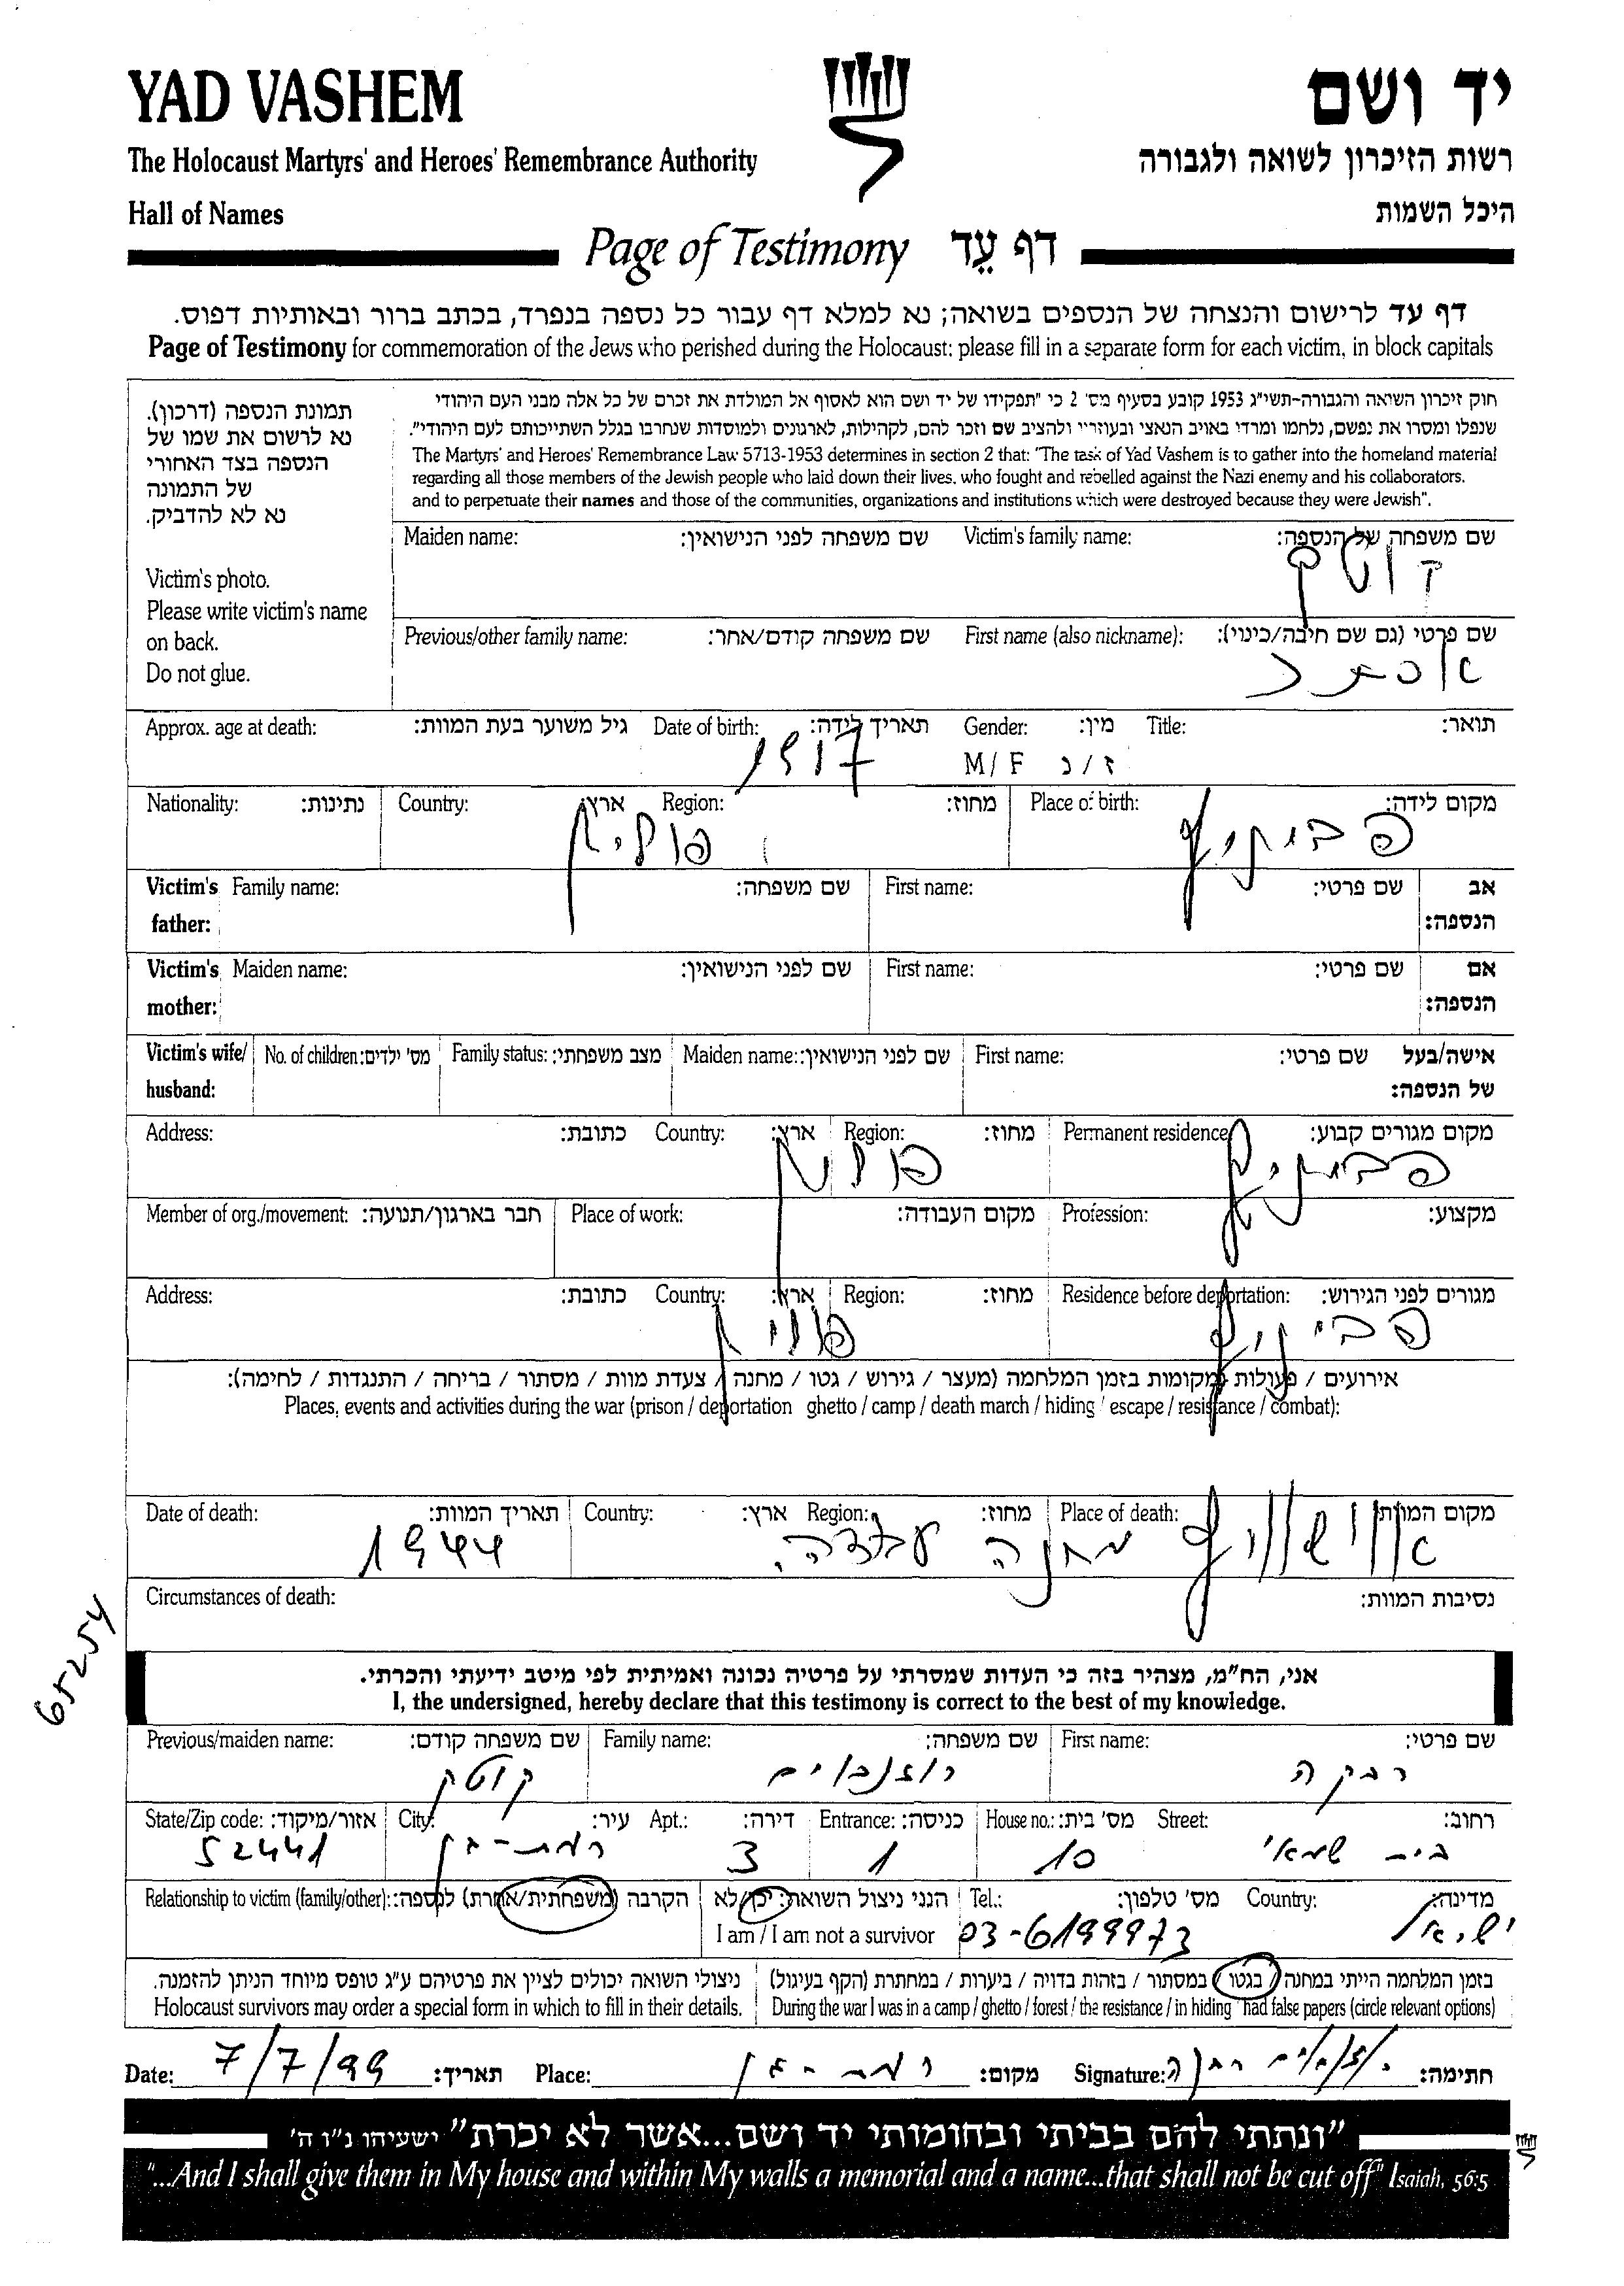 YAD VASHEM
יד ושם
The Holocaust Martyrs' and Heroes' Remembrance Authority
רשות הזיכרון לשואה ולגבורה
Hall of Names
היכל השמות
Page of Testimony דף עֵד
דף עד לרישום והנצחה של הנספים בשואה; נא למלא דף עבור כל נספה בנפרד, בכתב ברור ובאותיות דפוס.
Page of Testimony for commemoration of the Jews who perished during the Holocaust: please fill in a separate form for each victim, in block capitals
תמונת הנספה (דרכון).
נא לרשום את שמו של
הנספה בצד האחורי
של התמונה
נא לא להדביק.
Victim's photo.
Please write victim's name
on back.
Do not glue.
חוק זיכרון השואה והגבורה-תשי"ג 1953 קובע בסעיף מס' 2 כי "תפקידו של יד ושם הוא לאסוף אל המולדת את זכרם של כל אלה מבני העם היהודי
שנפלו ומסרו את נפשם, נלחמו ומרדו באויב הנאצי ובעוזריו ולהציב שם וזכר להם, לקהילות, לארגונים ולמוסדות שנחרבו בגלל השתייכותם לעם היהודי".
The Martyrs' and Heroes' Remembrance Law 5713-1953 determines in section 2 that: "The task of Yad Vashem is to gather into the homeland material
regarding all those members of the Jewish people who laid down their lives, who fought and rebelled against the Nazi enemy and his collaborators,
and to perpetuate their names and those of the communities, organizations and institutions which were destroyed because they were Jewish".
Maiden name: שם משפחה לפני הנישואין: Victim's family name: שם משפחה של הנספה:
קוטק
Previous/other family name: שם משפחה קודם/אחר: First name (also nickname): שם פרטי (גם שם חיבה/כינוי):
אסתר
Approx. age at death: גיל משוער בעת המוות: Date of birth: תאריך לידה: Gender: מין: Title: תואר:
1917 M/F ז/נ
Nationality: נתינות: Country: ארץ: Region: מחוז: Place of birth: מקום לידה:
פולין
Victim's father: Family name: שם משפחה: First name: שם פרטי: אב הנספה:
Victim's mother: Maiden name: שם לפני הנישואין: First name: שם פרטי: אם הנספה:
Victim's wife/ husband: No. of children: מס' ילדים: Family status: מצב משפחתי: Maiden name: שם לפני הנישואין: First name: שם פרטי: אישה/בעל של הנספה:
Address: כתובת: Country: ארץ: Region: מחוז: Permanent residence: מקום מגורים קבוע:
פולין
Member of org./movement: חבר בארגון/תנועה: Place of work: מקום העבודה: Profession: מקצוע:
Address: כתובת: Country: ארץ: Region: מחוז: Residence before deportation: מגורים לפני הגירוש:
פולין
אירועים / פעולות / מקומות בזמן המלחמה (מעצר / גירוש / גטו / מחנה / צעדת מוות / מסתור / בריחה / התנגדות / לחימה):
Places, events and activities during the war (prison / deportation ghetto / camp / death march / hiding / escape / resistance / combat):
Date of death: תאריך המוות: Country: ארץ: Region: מחוז: Place of death: מקום המוות:
אוישוויץ מחנה עבודה.
1944
Circumstances of death: נסיבות המוות:
65254
אני, הח"מ, מצהיר בזה כי העדות שמסרתי על פרטיה נכונה ואמיתית לפי מיטב ידיעתי והכרתי.
I, the undersigned, hereby declare that this testimony is correct to the best of my knowledge.
Previous/maiden name: שם משפחה קודם: Family name: שם משפחה: First name: שם פרטי:
רבקה רוזנבוים קוטק
State/Zip code: אזור/מיקוד: City: עיר: Apt.: דירה: Entrance: כניסה: House no.: מס' בית: Street: רחוב:
בית שמאי 10 1 3 רמת-גן 52441
Relationship to victim (family/other): הקרבה (משפחתית/אחרת) לנספה: הנני ניצול השואה: כן/לא Tel.: מס' טלפון: Country: מדינה:
I am / I am not a survivor 03-6199973 ישראל
בזמן המלחמה הייתי במחנה / בגטו / במסתור / בזהות בדויה / ביערות / במחתרת (הקף בעיגול)
During the war I was in a camp / ghetto / forest / the resistance / in hiding had false papers (circle relevant options)
ניצולי השואה יכולים לציין את פרטיהם ע"ג טופס מיוחד הניתן להזמנה.
Holocaust survivors may order a special form in which to fill in their details.
Date: 7/7/99 תאריך: Place: רמת-גן מקום: Signature: רוזנבוים רבקה חתימה:
"ונתתי להם בביתי ובחומותי יד ושם...אשר לא יכרת" ישעיהו נ"ו ה'
"...And I shall give them in My house and within My walls a memorial and a name...that shall not be cut off" Isaiah, 56:5